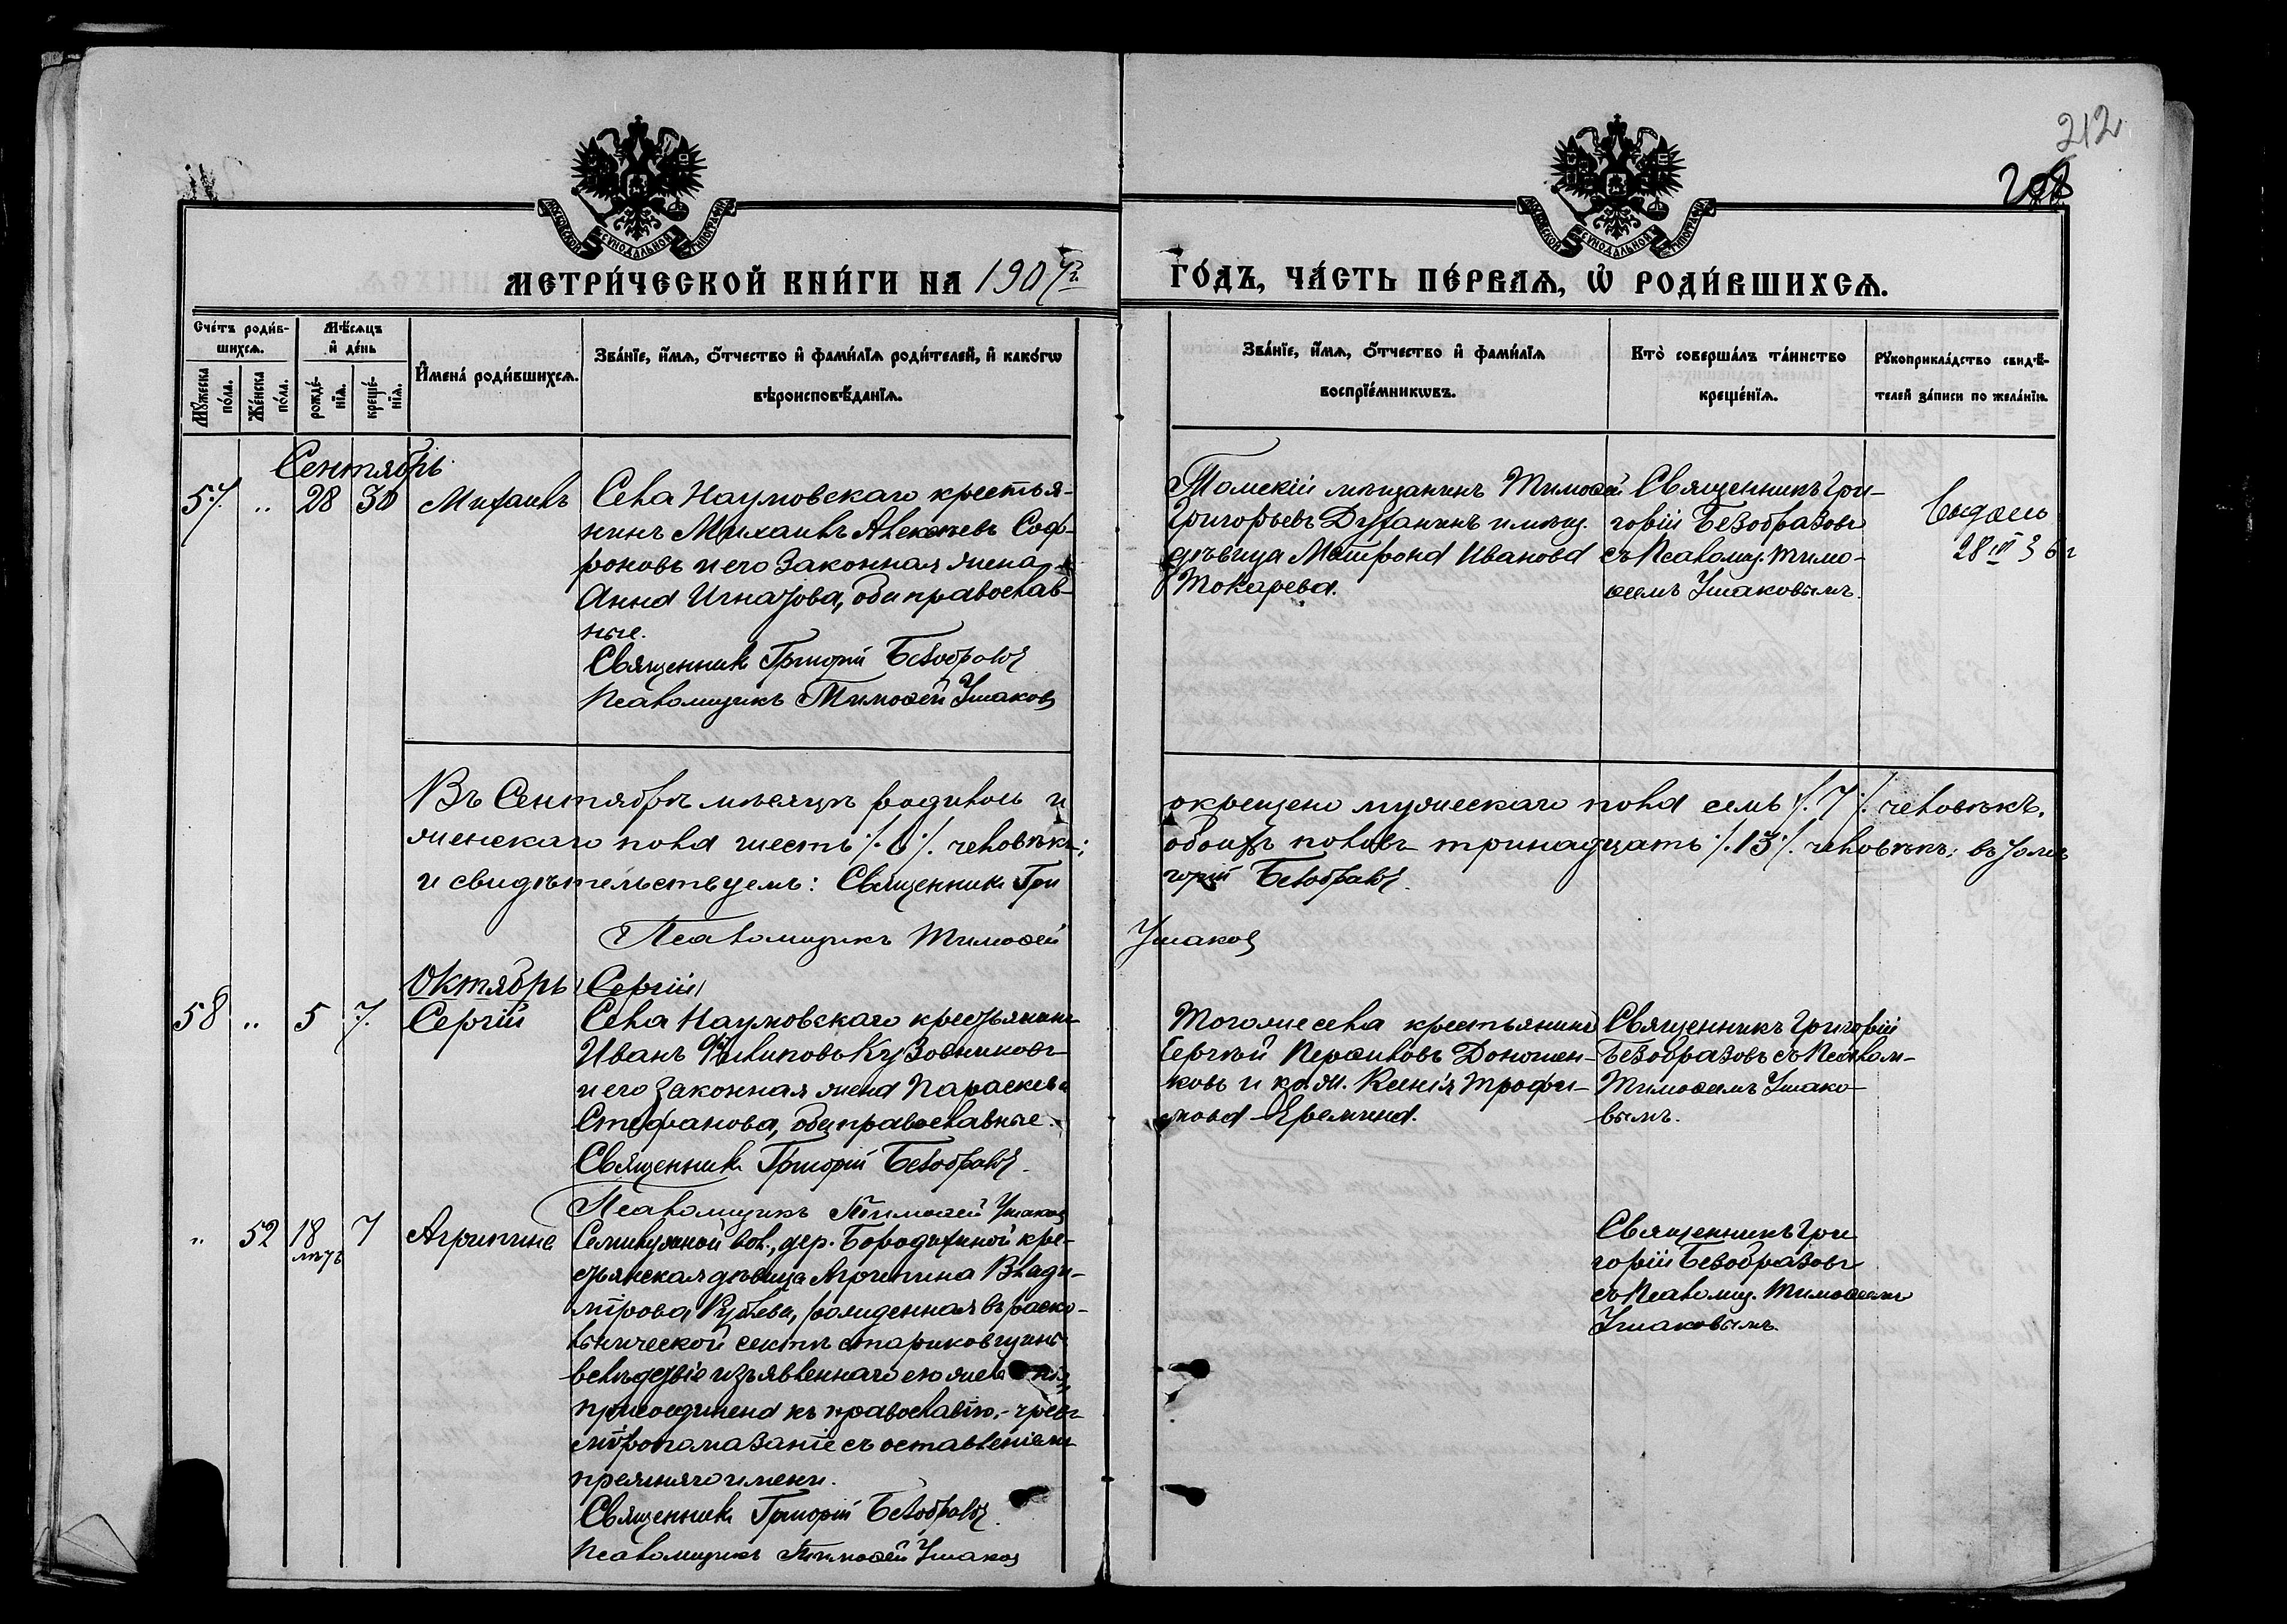 212
208
МОСКОВСКОЙ СѴНОДАЛЬНОЙ ТИПОГРАФІИ
МОСКОВСКОЙ СѴНОДАЛЬНОЙ ТИПОГРАФІИ
МЕТРИ́ЧЕСКОЙ КНИ́ГИ НА 1907 г.
ГО́ДЪ, ЧА́СТЬ ПЕ́РВАѦ, Ѡ҆ РОДИ́ВШИХСѦ.
Сче́тъ роди́в-
шихсѧ.
Мꙋ́жеска по́ла.
Же́нска по́ла.
Мѣ́сѧцъ
и҆ де́нь
рожде́-
нїѧ.
креще́-
нїѧ.
И҆мена̀ роди́вшихсѧ.
Зва́нїе, и҆́мѧ, ѻ҆́тчество и҆ фами́лїѧ роди́телей, и҆ како́гѡ
вѣроисповѣ́данїѧ.
Зва́нїе, и҆́мѧ, ѻ҆́тчество и҆ фами́лїѧ
воспрїе́мникѡвъ.
Кто̀ соверша́лъ та́инство
креще́нїѧ.
Рꙋкоприкла́дство свидѣ́-
телей за́писи по жела́нїю.
Сентябрь
57. „ 28 30 Михаилъ
Села Наумовскаго крестья-
нинъ Михаилъ Алексѣевъ Соф-
роновъ и его законная жена
Анна Игнатова, оба православ-
ные.
Священник Григорій Безобразов
Псаломщикъ Тимоѳей Ушаков
Томскій мѣщанинъ Тимоѳей
Григорьевъ и мѣщ.
дѣвица Матрона Иванова
Токарева.
Священникъ Гри-
горій Безобразовъ
съ Псаломщ. Тимо-
ѳеемъ Ушаковымъ.
28 III 36 г
Въ Сентябрѣ мѣсяцѣ родилось и окрещено мужескаго пола семь /. 7 /. человѣкъ,
женскаго пола шесть /. 6 /. человѣкъ; обоихъ половъ тринадцать /. 13 /. человѣкъ; въ томъ
и свидѣтельствуемъ: Священник Григорій Безобразов.
Псаломщикъ Тимоѳей Ушаков
Октябрь Сергій
58 „ 5 7. Сергій
Села Наумовскаго крестьянинъ
Иванъ Филиповъ Кузовниковъ
и его законная жена Параскева
Стефанова, оба православные.
Священник Григорій Безобразов.
Псаломщикъ Тимоѳей Ушаков
Тогоже села крестьянинъ
Сергѣй Доношен-
ковъ и кр. ж. Ксенія Трофи-
мова Еремина.
Священникъ Григорій
Безобразовъ съ Псалом-
Тимоѳеемъ Ушако-
вымъ.
„ 52 18 лѣтъ 7 Агрипина
Семилужной вол., дер. кре-
стьянская дѣвица Агрипина Влади-
мірова рожденная въ раско-
льнической сектѣ стариковщинѣ
вслѣдствіе изъявленнаго ею
присоединена къ православію, - чрезъ
мѵропомазаніе съ оставленіемъ
прежняго имени.
Священник Григорій Безобразов.
Псаломщикъ Тимоѳей Ушаков
Священникъ Гри
горій Безобразовъ
съ Псаломщ. Тимоѳеемъ
Ушаковымъ.